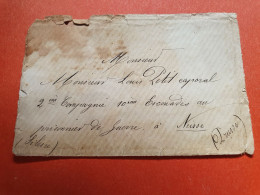 Monsieur
Monsieur Louis Petit caporal
2me Compagnie 10me Escouades au
prisonnier de Guerre à Neisse
(Silésie) (Prusse)